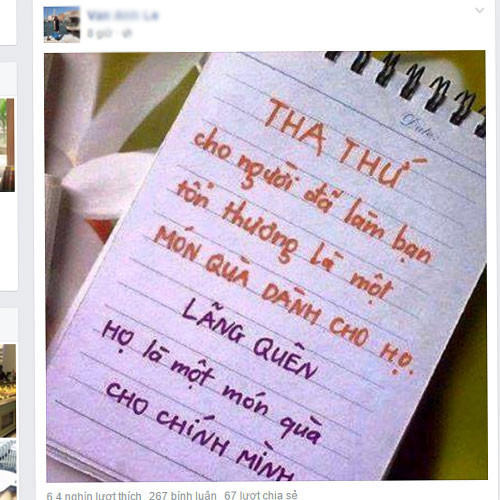 Date:
THA THỨ
cho người đã làm bạn
tổn thương là một
MÓN QUÀ DÀNH CHO HỌ.
LÃNG QUÊN
HỌ là một món quà
CHO CHÍNH MÌNH
6,4 nghìn lượt thích 267 bình luận 67 lượt chia sẻ